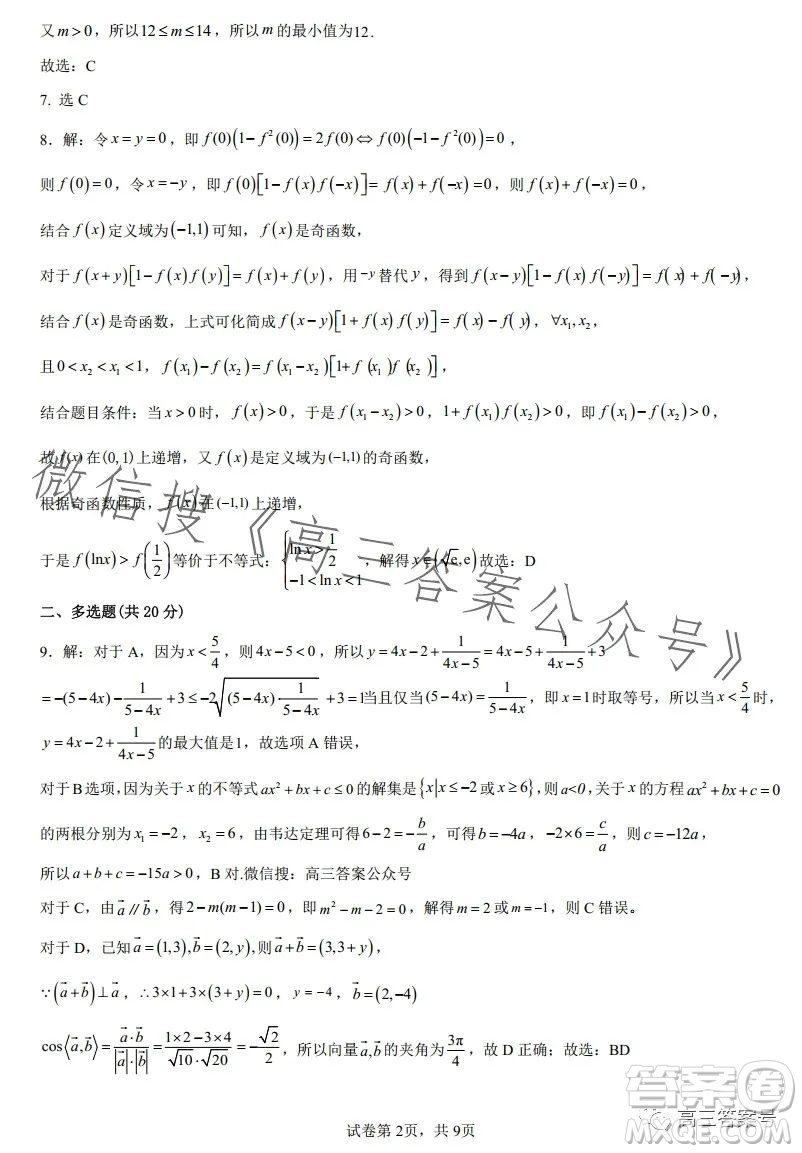 又m>0，所以12≤m≤14，所以m的最小值为12．
故选：C
7. 选C
8．解：令x=y=0，即f(0)(1−f²(0))=2f(0)⇔f(0)(−1−f²(0))=0，
则f(0)=0，令x=−y，即f(0)[1−f(x)f(−x)]=f(x)+f(−x)=0，则f(x)+f(−x)=0，
结合f(x)定义域为(−1,1)可知，f(x)是奇函数，
对于f(x+y)[1−f(x)f(y)]=f(x)+f(y)，用−y替代y，得到f(x−y)[1−f(x)f(−y)]=f(x)+f(−y)，
结合f(x)是奇函数，上式可化简成f(x−y)[1+f(x)f(y)]=f(x)−f(y)，∀x₁,x₂，
且0<x₂<x₁<1，f(x₁)−f(x₂)=f(x₁−x₂)[1+f(x₁)f(x₂)]，
结合题目条件：当x>0时，f(x)>0，于是f(x₁−x₂)>0，1+f(x₁)f(x₂)>0，即f(x₁)−f(x₂)>0，
故f(x)在(0,1)上递增，又f(x)是定义域为(−1,1)的奇函数，
根据奇函数性质，f(x)在(−1,1)上递增，
于是f(lnx)>f(1/2)等价于不等式：{lnx>1/2 −1<lnx<1，解得x∈(√e,e)故选：D
二、多选题(共20分)
9．解：对于A，因为x<5/4，则4x−5<0，所以y=4x−2+1/(4x−5)=4x−5+1/(4x−5)+3
=−(5−4x)−1/(5−4x)+3≤−2√((5−4x)·1/(5−4x))+3=1当且仅当(5−4x)=1/(5−4x)，即x=1时取等号，所以当x<5/4时，
y=4x−2+1/(4x−5)的最大值是1，故选项A错误，
对于B选项，因为关于x的不等式ax²+bx+c≤0的解集是{x|x≤−2或x≥6}，则a<0，关于x的方程ax²+bx+c=0
的两根分别为x₁=−2，x₂=6，由韦达定理可得6−2=−b/a，可得b=−4a，−2×6=c/a，则c=−12a，
所以a+b+c=−15a>0，B对.微信搜：高三答案公众号
对于C，由a⃗∥b⃗，得2−m(m−1)=0，即m²−m−2=0，解得m=2或m=−1，则C错误。
对于D，已知a⃗=(1,3),b⃗=(2,y),则a⃗+b⃗=(3,3+y)，
∵(a⃗+b⃗)⊥a⃗，∴3×1+3×(3+y)=0，y=−4，b⃗=(2,−4)
cos⟨a⃗,b⃗⟩=a⃗·b⃗/(|a⃗|·|b⃗|)=(1×2−3×4)/(√10·√20)=−√2/2，所以向量a⃗,b⃗的夹角为3π/4，故D正确；故选：BD
试卷第2页，共9页
微信搜《高三答案公众号》
高三答案号
答案圈
MXQE.COM